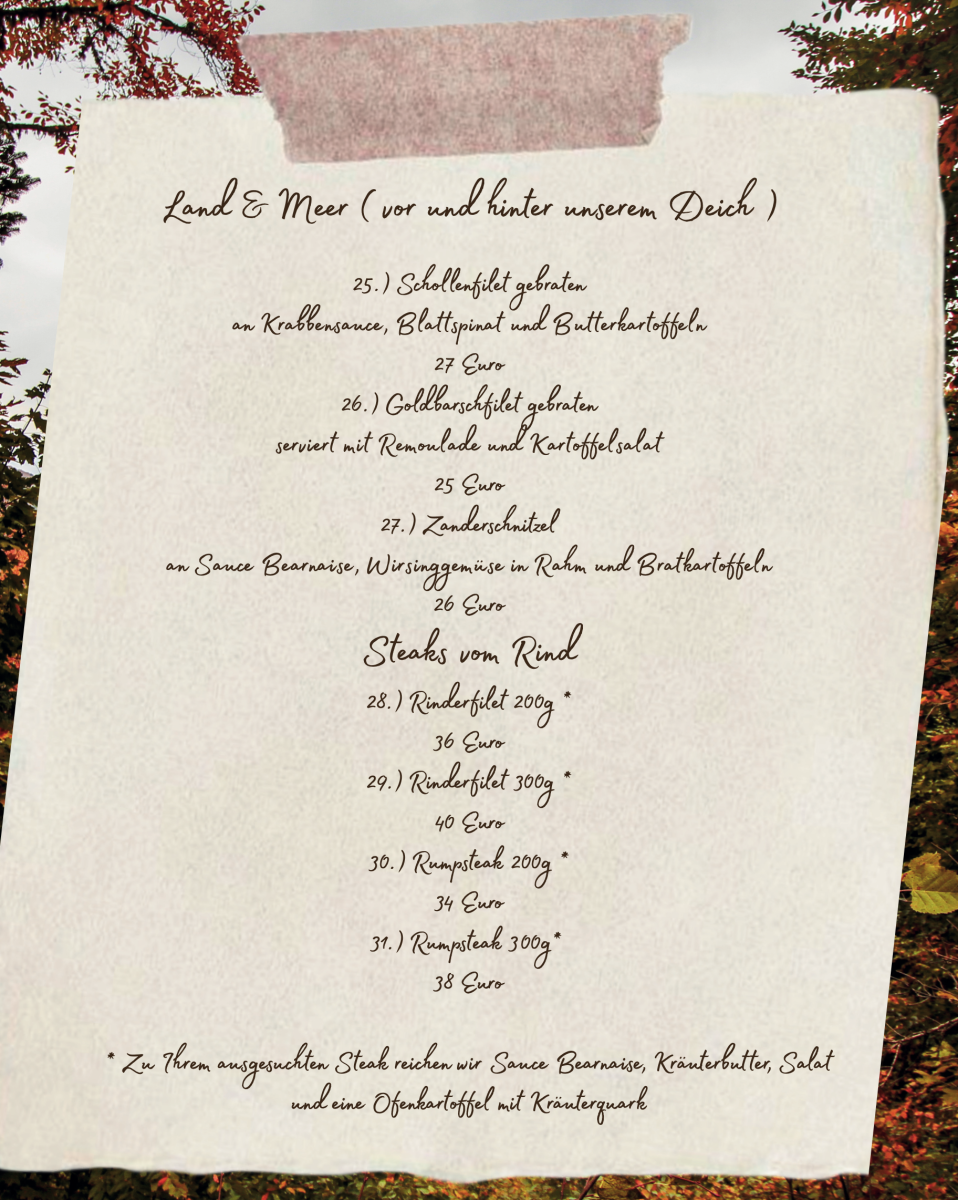 Land & Meer ( vor und hinter unserem Deich )
25.) Schollenfilet gebraten
an Krabbensauce, Blattspinat und Butterkartoffeln
27 Euro
26.) Goldbarschfilet gebraten
serviert mit Remoulade und Kartoffelsalat
25 Euro
27.) Zanderschnitzel
an Sauce Bearnaise, Wirsinggemüse in Rahm und Bratkartoffeln
26 Euro
Steaks vom Rind
28.) Rinderfilet 200g *
36 Euro
29.) Rinderfilet 300g *
40 Euro
30.) Rumpsteak 200g *
34 Euro
31.) Rumpsteak 300g*
38 Euro
* Zu Ihrem ausgesuchten Steak reichen wir Sauce Bearnaise, Kräuterbutter, Salat
und eine Ofenkartoffel mit Kräuterquark